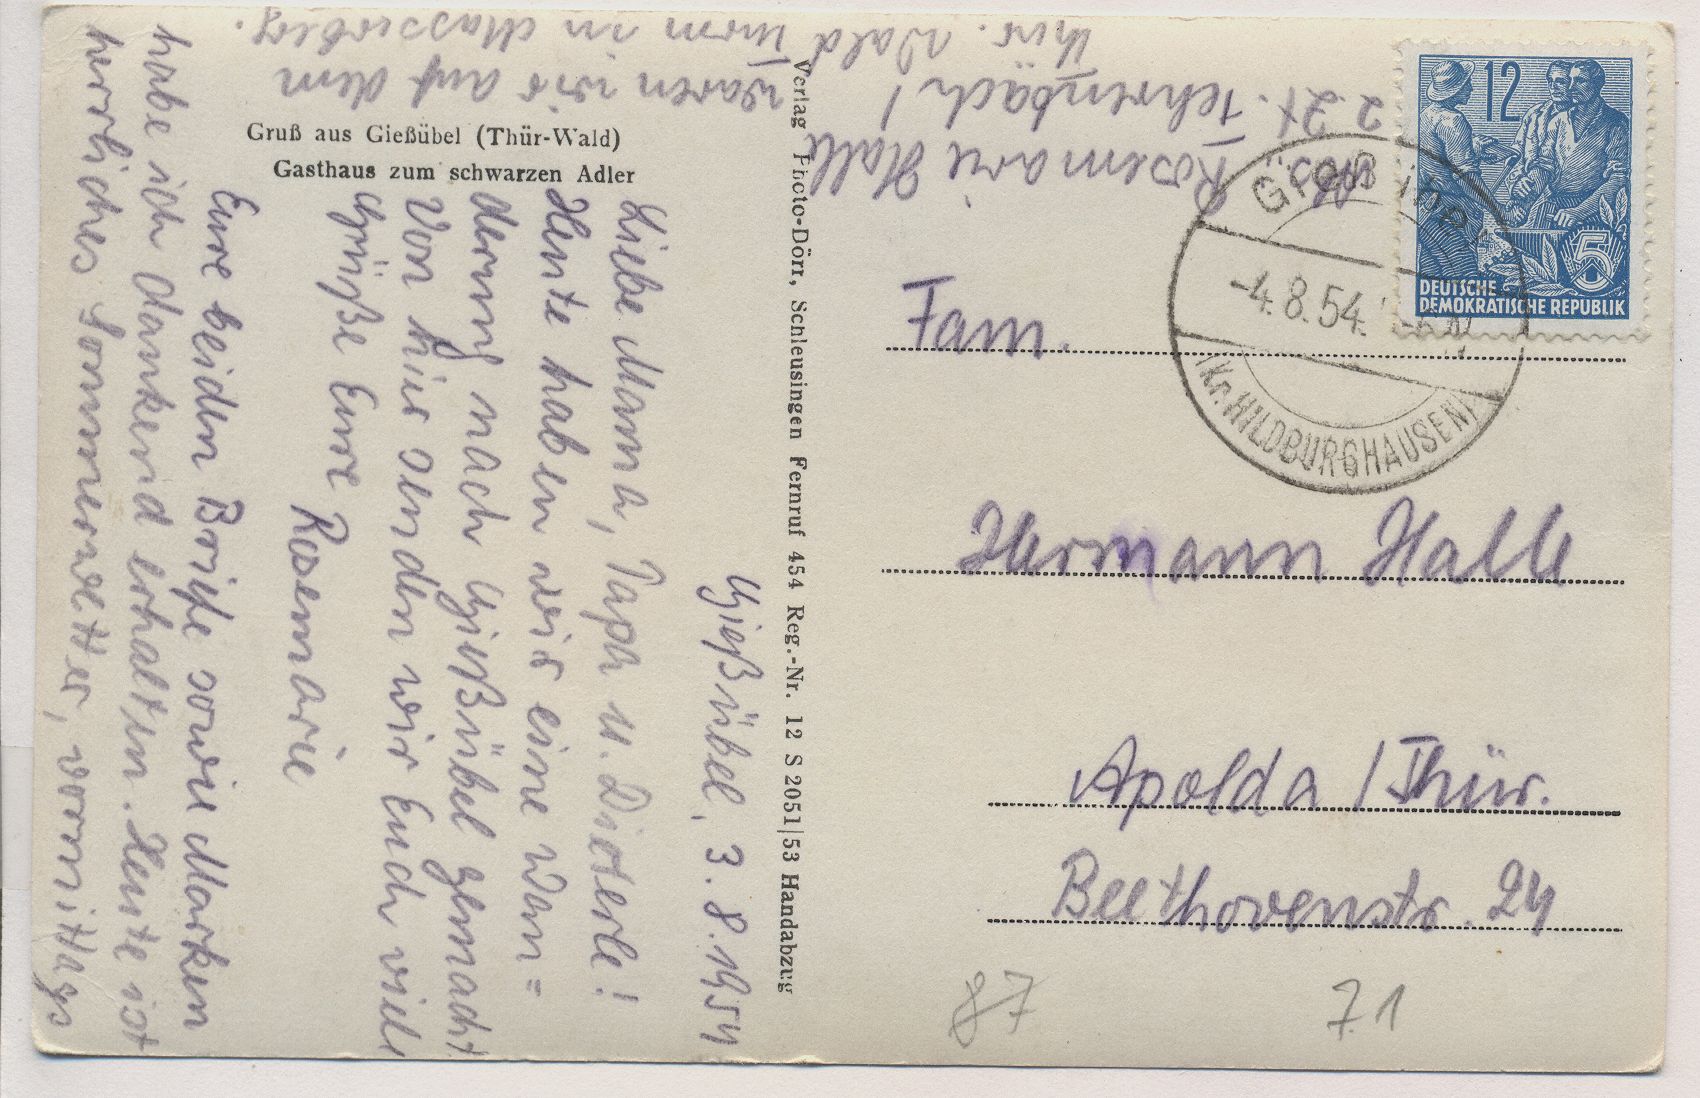 Gruß aus Gießübel (Thür-Wald)
Gasthaus zum schwarzen Adler
Gießübel, 3.8.1954
Liebe Mama, Papa u. Dieterle!
Heute haben wir eine Wan=
derung nach Gießübel gemacht.
Von hier senden wir Euch viele
Grüße Eure
Rosemarie
Eure beiden Briefe sowie Marken
habe ich dankend erhalten. Heute ist
herrliches Sommerwetter, vormittags
waren wir auf dem
Turm in Masserberg.
Verlag Photo-Dörr, Schleusingen Fernruf 454 Reg.-Nr. 12 S 2051/53 Handabzug
Abs.
Rosemarie Halle
z. Zt. Fehrenbach /
Thür. Wald
12
5
DEUTSCHE
DEMOKRATISCHE REPUBLIK
-4.8.54.
(Kr. HILDBURGHAUSEN)
Fam.
Hermann Halle
Apolda / Thür.
Beethovenstr. 24
87
71